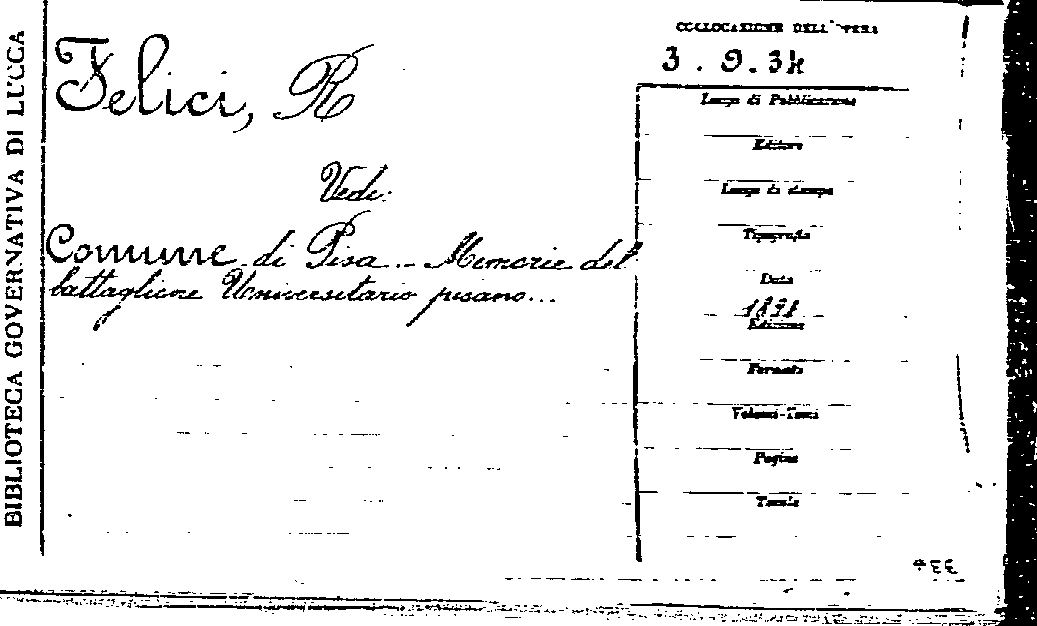 BIBLIOTECA GOVERNATIVA DI LUCCA
Felici, R
Vedi:
Comune di Pisa - Memorie del
battaglione Universitario pisano...
COLLOCAZIONE DELL'OPERA
3 . 9.34
Luogo di Pubblicazione
Editore
Luogo di stampa
Tipografia
Data
1898
Edizione
Formato
Volumi-Tomi
Pagine
Tavole